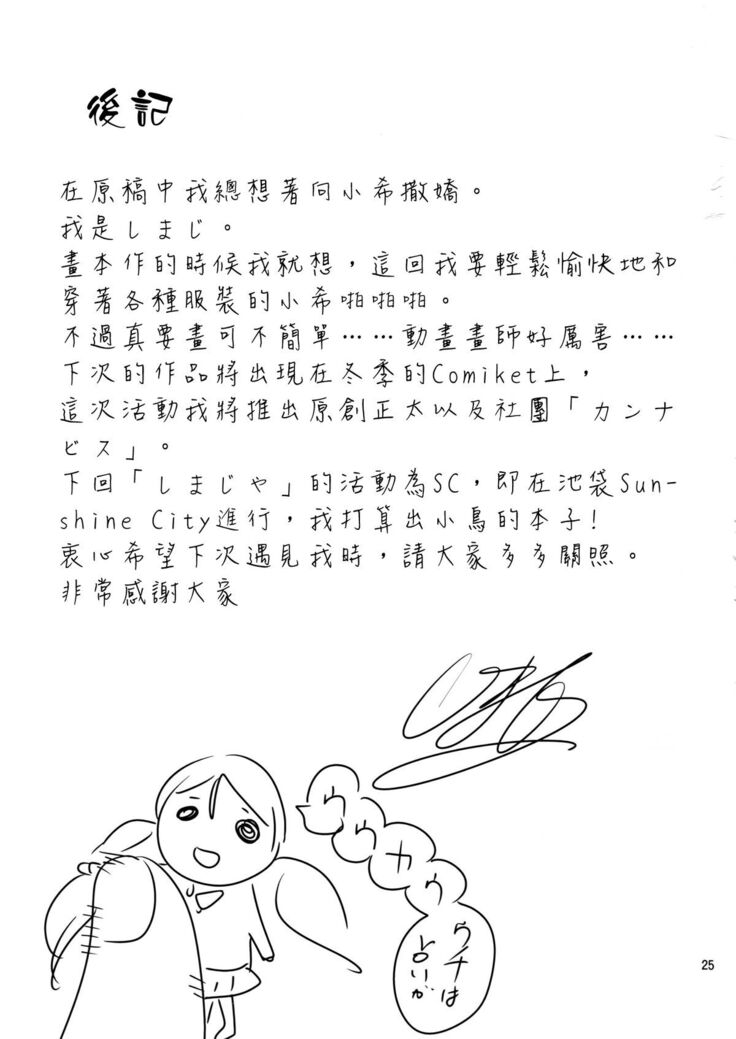 後記
在原稿中我總想著向小希撒嬌。
我是しまじ。
畫本作的時候我就想，這回我要輕鬆愉快地和
穿著各種服裝的小希啪啪啪。
不過真要畫可不簡單……動畫畫師好厲害……
下次的作品將出現在冬季的Comiket上，
這次活動我將推出原創正太以及社團「カンナ
ビス」。
下回「しまじや」的活動為SC，即在池袋Sun-
shine City進行，我打算出小鳥的本子！
衷心希望下次遇見我時，請大家多多關照。
非常感謝大家
ウウカウ
ウチは
占いが
25